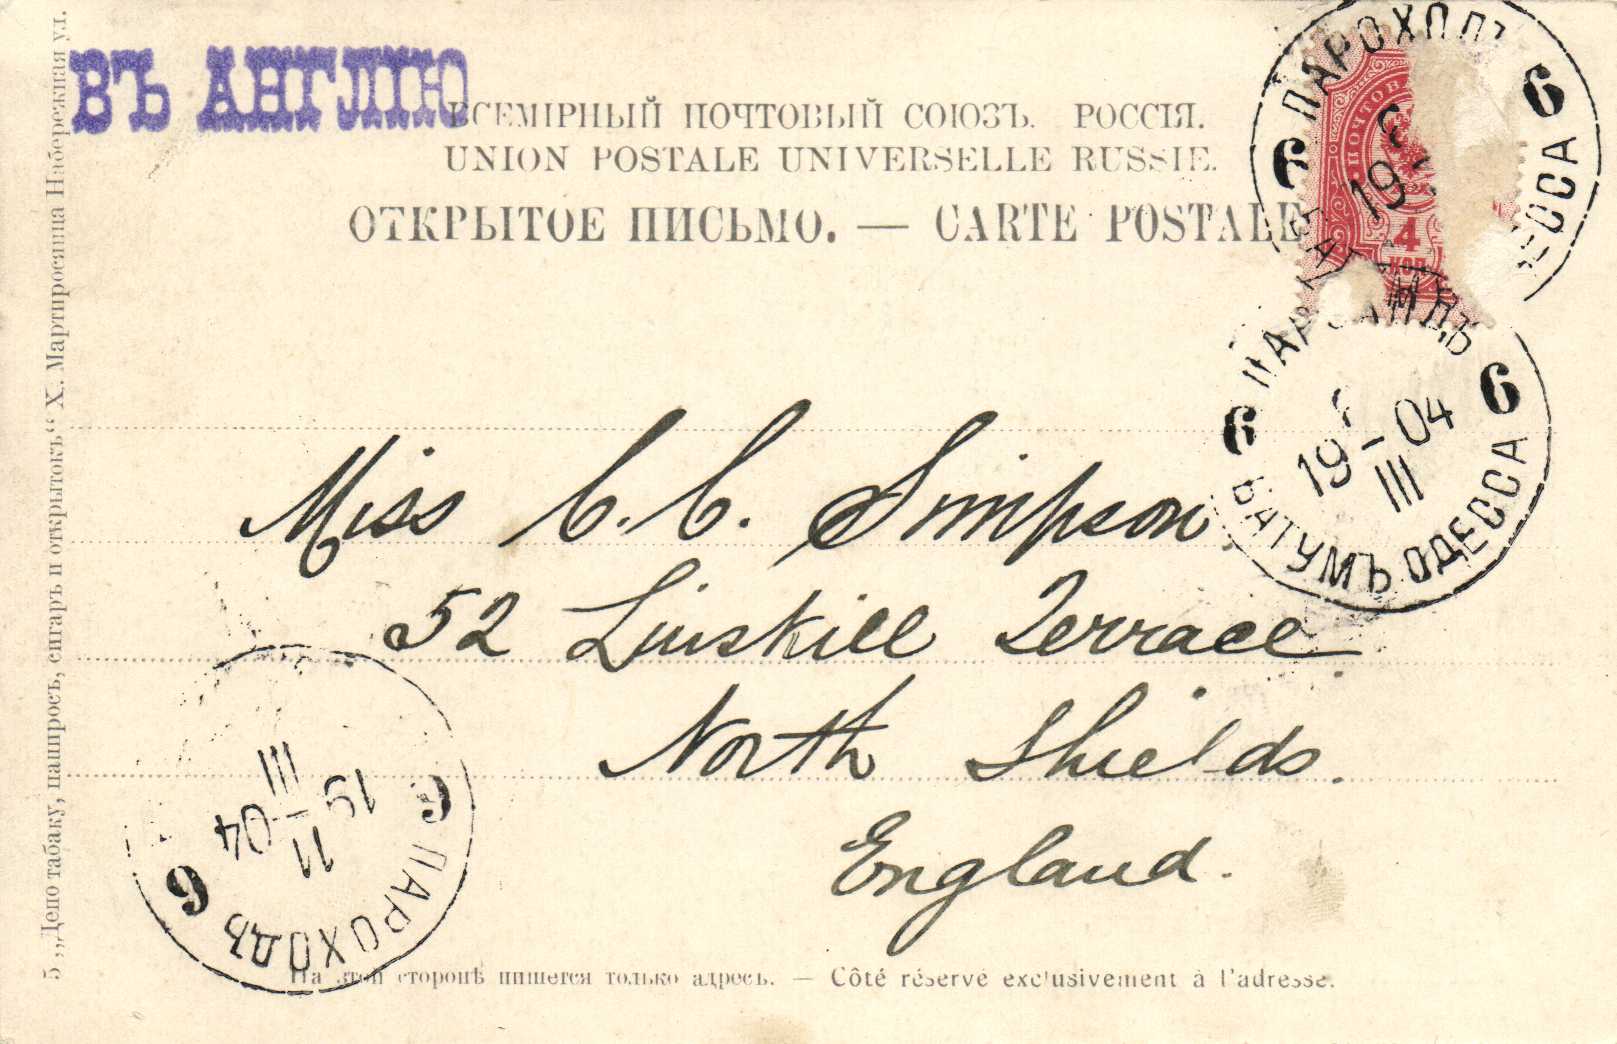 ВЪ АНГЛІЮ
ВСЕМІРНЫЙ ПОЧТОВЫЙ СОЮЗЪ. РОССІЯ.
UNION POSTALE UNIVERSELLE RUSSIE.
ОТКРЫТОЕ ПИСЬМО. — CARTE POSTALE
ПАРОХОДЪ
6 6
19
ОДЕССА
ПОЧТОВ
4
КОП.
6 6
19 — 04
III
БАТУМЪ ОДЕССА
Miss C. C. Simpson
52 Linskill Terrace
North Shields.
England.
6 ПАРОХОДЪ 6
11
19 — 04
III
На этой сторонѣ пишется только адресъ. — Côté réservé exclusivement à l'adresse.
5 „Депо табаку, папиросъ, сигаръ и открытокъ“ Х. Мартиросянца Набережная ул.